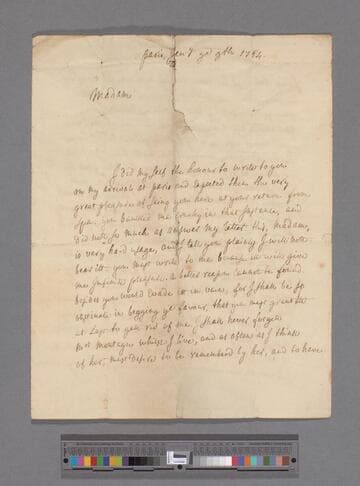 paris, Jan.y ye 9th 1754.
Madam
I did my self the honour to write to you
on my arrival at paris and expected then the very
great pleasure of seing you here at your return from
spa. you banished me cruelly in that instance, and
did not so much as answer my letter this, madam,
is very hard usage, and I tell you plainly I will not
bear it. you must write to me because it will give
me infinite pleasure. a better reason cannot be found
besides you would evade it in vain, for I shall be so
obstinate in begging yt favour, that you must grant it
at last to get rid of me. I shall never forget
mrs montagu whilst I live, and as often as I think
of her, must desire to be remembered by her, and to have